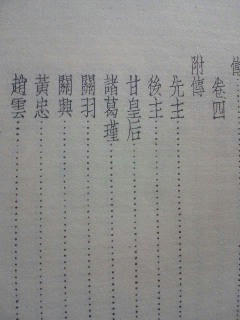 傳
卷四
附傳
先主
後主
甘皇后
諸葛瑾
關羽
關興
黃忠
趙雲